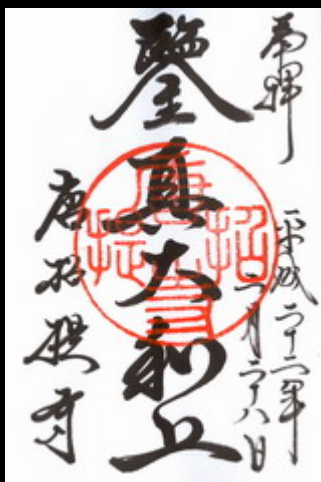 奉拝
平成二十二年
二月二十八日
鑒真大和上
唐招提寺